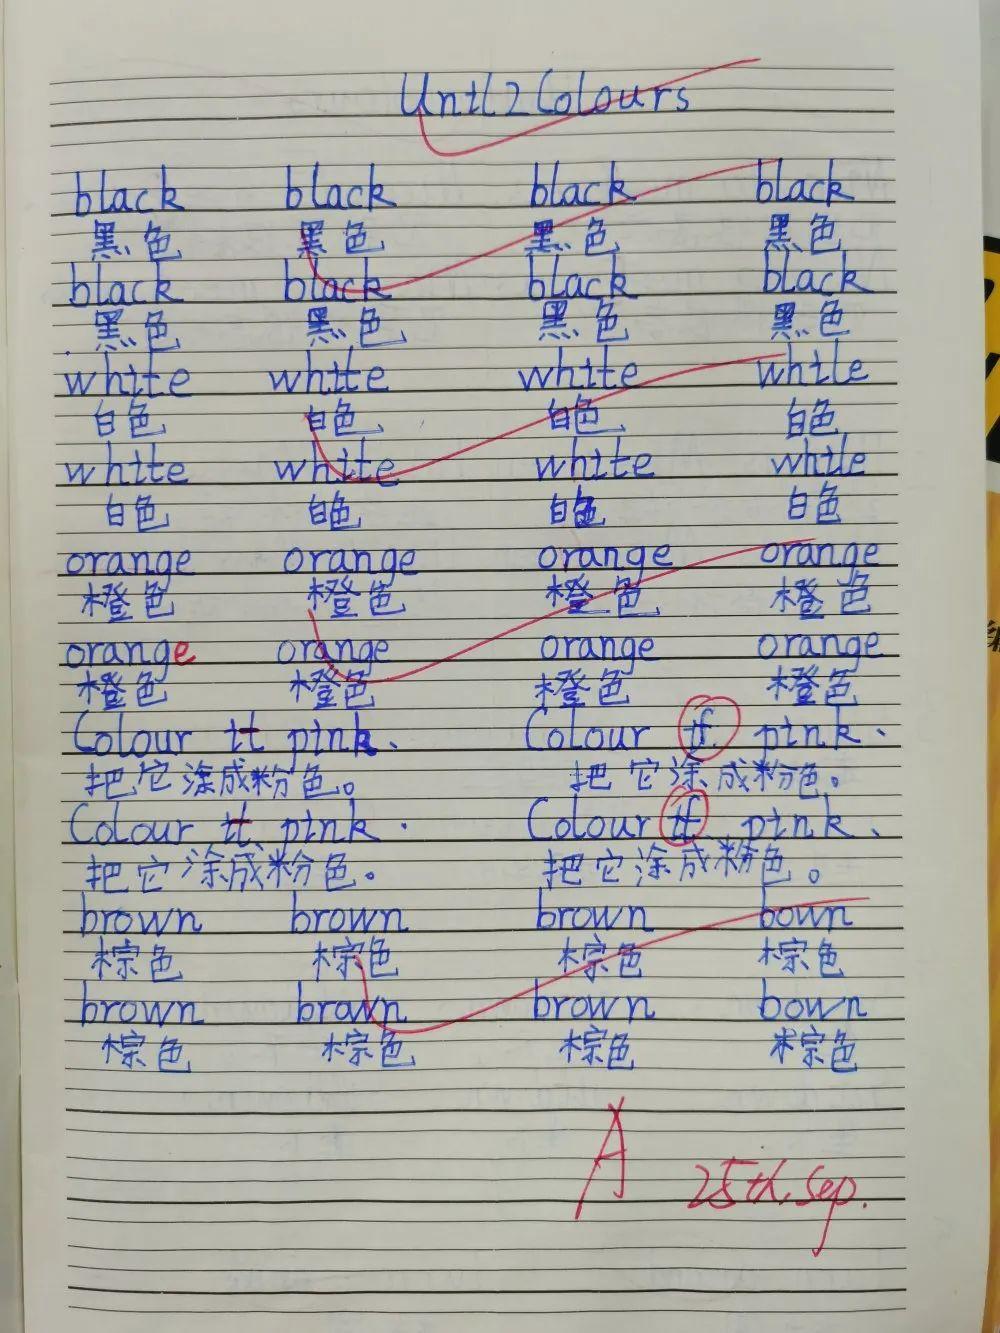 Unit 2 Colours
black black black black
黑色 黑色 黑色 黑色
black black black black
黑色 黑色 黑色 黑色
white white white white
白色 白色 白色 白色
white white white white
白色 白色 白色 白色
orange orange orange orange
橙色 橙色 橙色 橙色
orange orange orange orange
橙色 橙色 橙色 橙色
Colour it pink. Colour if pink.
把它涂成粉色。 把它涂成粉色。
Colour it pink. Colour if pink.
把它涂成粉色。 把它涂成粉色。
brown brown brown bown
棕色 棕色 棕色 棕色
brown brown brown bown
棕色 棕色 棕色 棕色
A 25th. Sep.